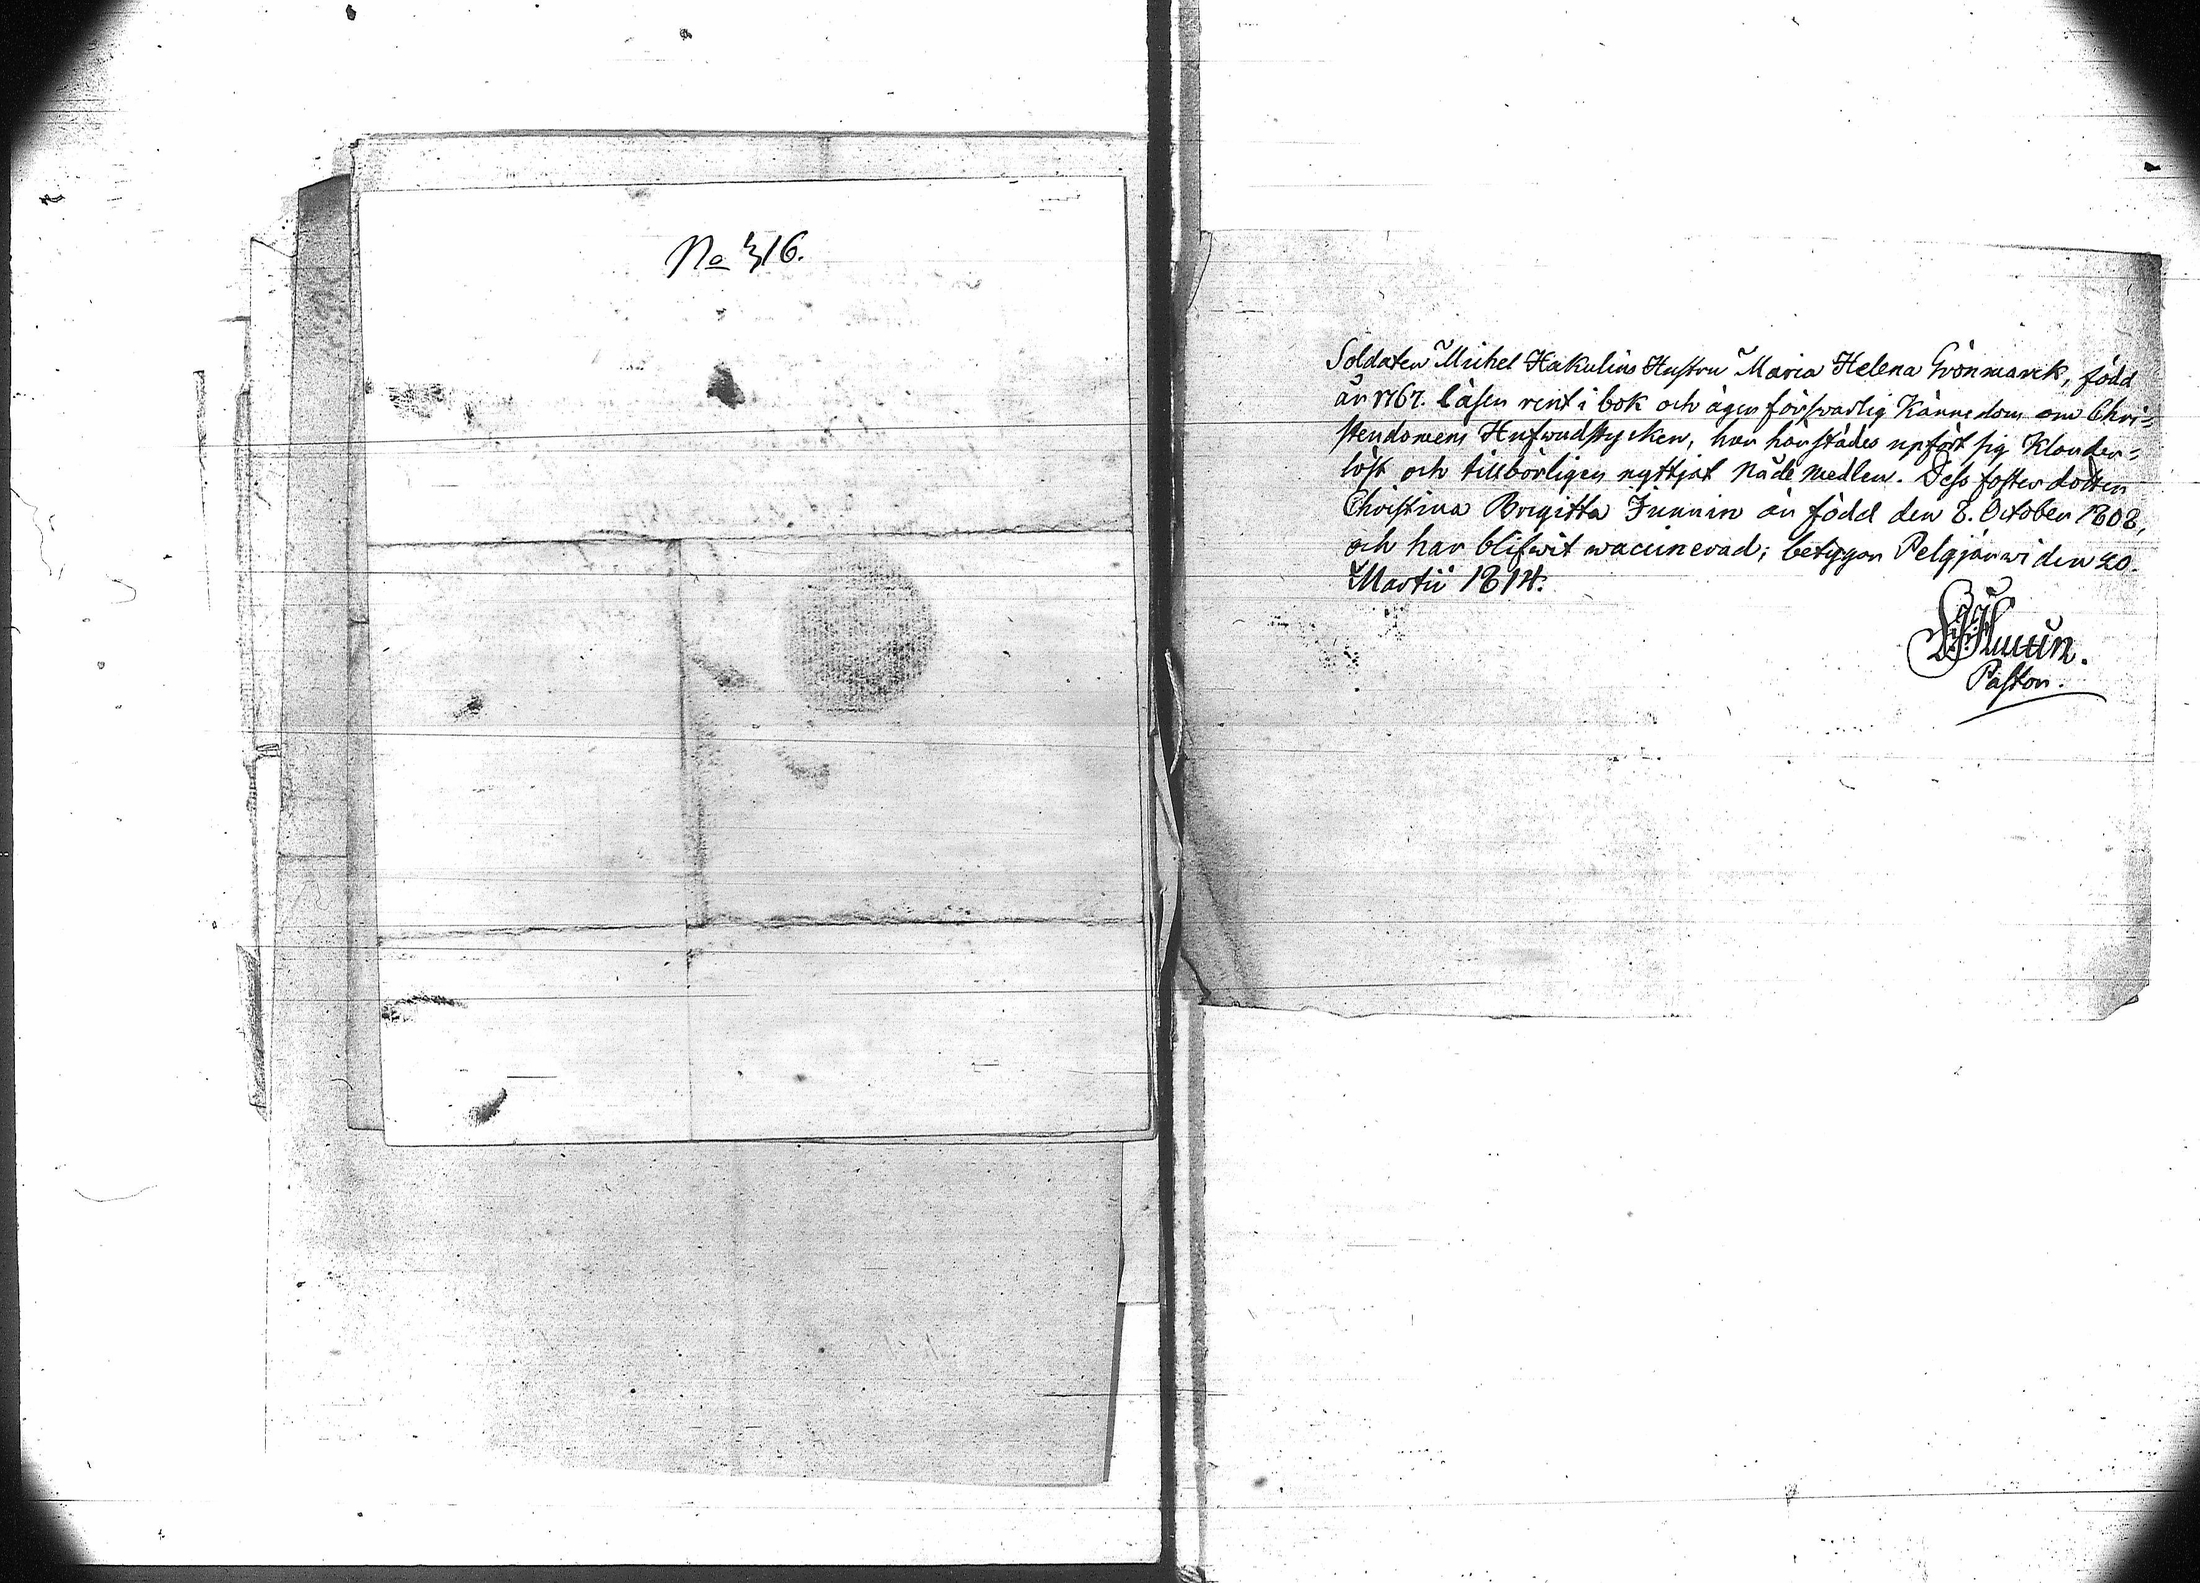 No 316.
Soldaten Michel Hakulins Hustru Maria Helena Grönmarck, född
år 1767. läser rent i bok och äger förswarlig Kännedom om Chri=
stendomens Hufwudstycken, har härstädes upfört sig Klander=
löst och tillbörligen nyttjat Nåde Medlen. Dess foster dotter
Christina Brigitta Junnin är född den 8. October 1808,
och har blifwit waccinerad; betygar Pelgjärwi den 20.
Martii 1814.
Pastor.